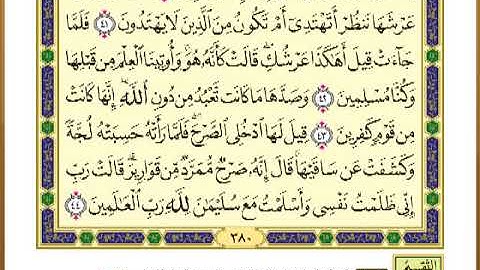 عَرْشَهَا نَنظُرْ أَتَهْتَدِىٓ أَمْ تَكُونُ مِنَ ٱلَّذِينَ لَا يَهْتَدُونَ ٤١ فَلَمَّا
جَآءَتْ قِيلَ أَهَٰكَذَا عَرْشُكِ ۖ قَالَتْ كَأَنَّهُۥ هُوَ ۚ وَأُوتِينَا ٱلْعِلْمَ مِن قَبْلِهَا
وَكُنَّا مُسْلِمِينَ ٤٢ وَصَدَّهَا مَا كَانَت تَّعْبُدُ مِن دُونِ ٱللَّهِ ۖ إِنَّهَا كَانَتْ
مِن قَوْمٍ كَٰفِرِينَ ٤٣ قِيلَ لَهَا ٱدْخُلِى ٱلصَّرْحَ ۖ فَلَمَّا رَأَتْهُ حَسِبَتْهُ لُجَّةً
وَكَشَفَتْ عَن سَاقَيْهَا ۚ قَالَ إِنَّهُۥ صَرْحٌ مُّمَرَّدٌ مِّن قَوَارِيرَ ۗ قَالَتْ رَبِّ
إِنِّى ظَلَمْتُ نَفْسِى وَأَسْلَمْتُ مَعَ سُلَيْمَٰنَ لِلَّهِ رَبِّ ٱلْعَٰلَمِينَ ٤٤
٣٨٠
التَّقْسِيمُ